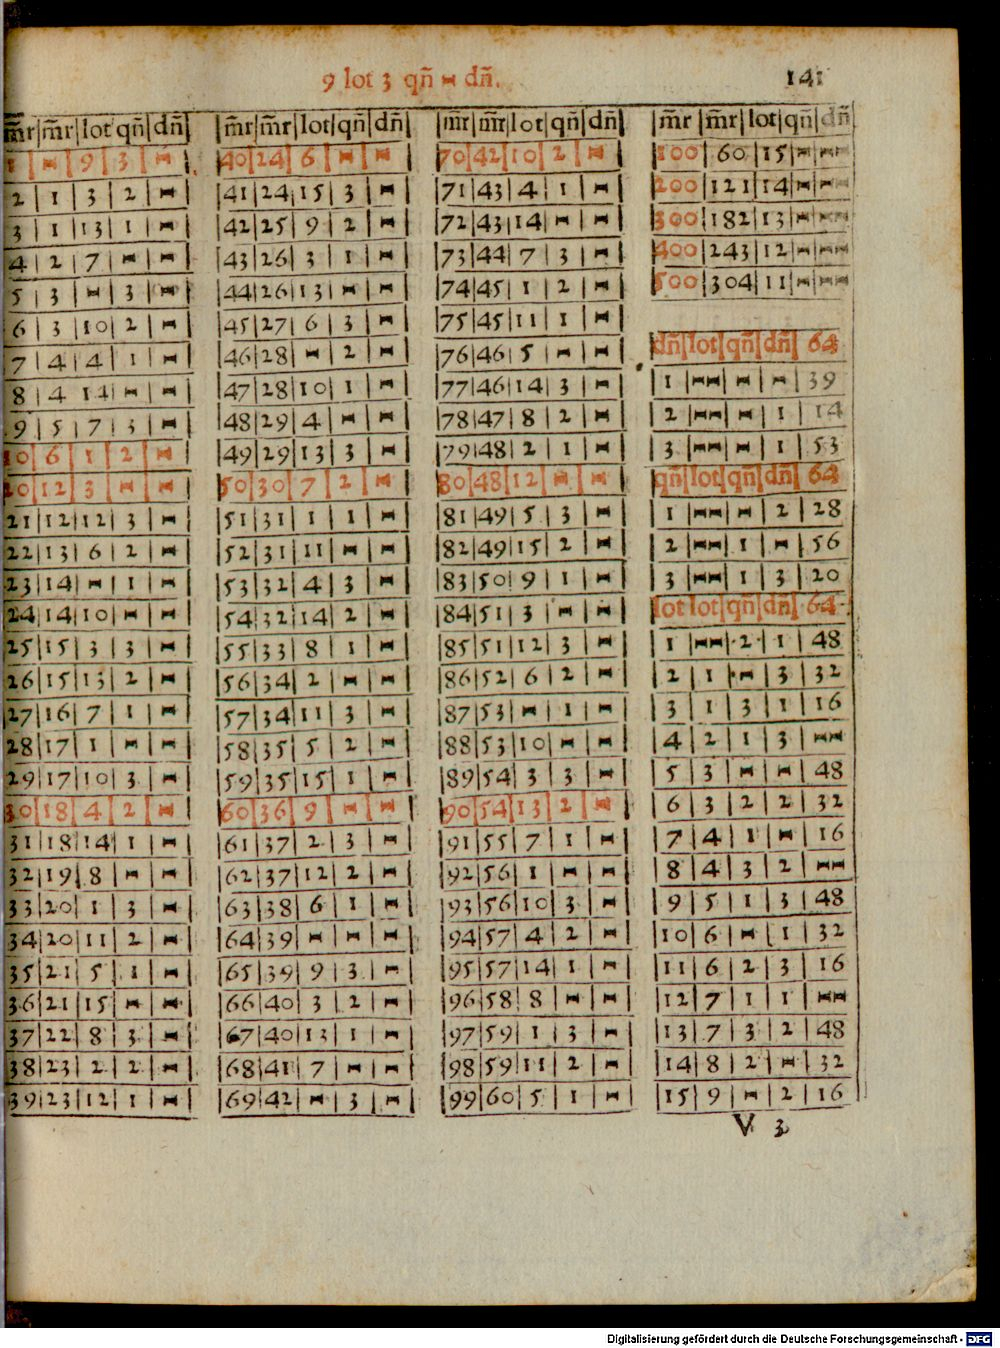 9 lot 3 qñ - dñ.
141
m̃r|m̃r|lot|qñ|dñ|
1|-|9|3|-|
2|1|3|2|-|
3|1|13|1|-|
4|2|7|-|-|
5|3|-|3|-|
6|3|10|2|-|
7|4|4|1|-|
8|4 14|-|-|
9|5|7|3|-|
10|6|1|2|-|
20|12|3|-|-|
21|12|12|3|-|
22|13|6|2|-|
23|14|-|1|-|
24|14|10|-|-|
25|15|3|3|-|
26|15|13|2|-|
27|16|7|1|-|
28|17|1|-|-|
29|17|10|3|-|
30|18|4|2|-|
31|18|14|1|-|
32|19|8|-|-|
33|20|1|3|-|
34|20|11|2|-|
35|21|5|1|-|
36|21|15|-|-|
37|22|8|3|-|
38|23|2|2|-|
39|23|12|1|-|
|m̃r|m̃r|lot|qñ|dñ|
40|24|6|-|-|
|41|24|15|3|-|
|42|25|9|2|-|
|43|26|3|1|-|
|44|26|13|-|-|
|45|27|6|3|-|
|46|28|-|2|-|
|47|28|10|1|-|
|48|29|4|-|-|
|49|29|13|3|-|
50|30|7|2|-|
|51|31|1|1|-|
|52|31|11|-|-|
|53|32|4|3|-|
|54|32|14|2|-|
|55|33|8|1|-|
|56|34|2|-|-|
|57|34|11|3|-|
|58|35|5|2|-|
|59|35|15|1|-|
60|36|9|-|-|
|61|37|2|3|-|
|62|37|12|2|-|
|63|38|6|1|-|
|64|39|-|-|-|
|65|39|9|3|-|
|66|40|3|2|-|
|67|40|13|1|-|
|68|41|7|-|-|
|69|42|-|3|-|
|m̃r|m̃r|lot|qñ|dñ|
70|42|10|2|-|
|71|43|4|1|-|
|72|43|14|-|-|
|73|44|7|3|-|
|74|45|1|2|-|
|75|45|11|1|-|
|76|46|5|-|-|
|77|46|14|3|-|
|78|47|8|2|-|
|79|48|2|1|-|
80|48|12|-|-|
|81|49|5|3|-|
|82|49|15|2|-|
|83|50|9|1|-|
|84|51|3|-|-|
|85|51|12|3|-|
|86|52|6|2|-|
|87|53|-|1|-|
|88|53|10|-|-|
|89|54|3|3|-|
90|54|13|2|-|
|91|55|7|1|-|
|92|56|1|-|-|
|93|56|10|3|-|
|94|57|4|2|-|
|95|57|14|1|-|
|96|58|8|-|-|
|97|59|1|3|-|
|98|59|11|2|-|
|99|60|5|1|-|
|m̃r|m̃r|lot|qñ|dñ
|100|60|15|-|--
|200|121|14|-|--
|300|182|13|-|--
|400|243|12|-|--
|500|304|11|-|--
dñ|lot|qñ|dñ|64
|1|--|-|-|39
|2|--|-|1|14
|3|--|-|1|53
qñ|lot|qñ|dñ|64
|1|--|-|2|28
|2|--|1|-|56
|3|--|1|3|20
lot lot|qñ|dñ|64
|1|--|2|1|48
|2|1|-|3|32
|3|1|3|1|16
|4|2|1|3|--
|5|3|-|-|48
|6|3|2|2|32
|7|4|1|-|16
|8|4|3|2|--
|9|5|1|3|48
|10|6|-|1|32
|11|6|2|3|16
|12|7|1|1|--
|13|7|3|2|48
|14|8|2|-|32
|15|9|-|2|16
V 3
Digitalisierung gefördert durch die Deutsche Forschungsgemeinschaft - DFG